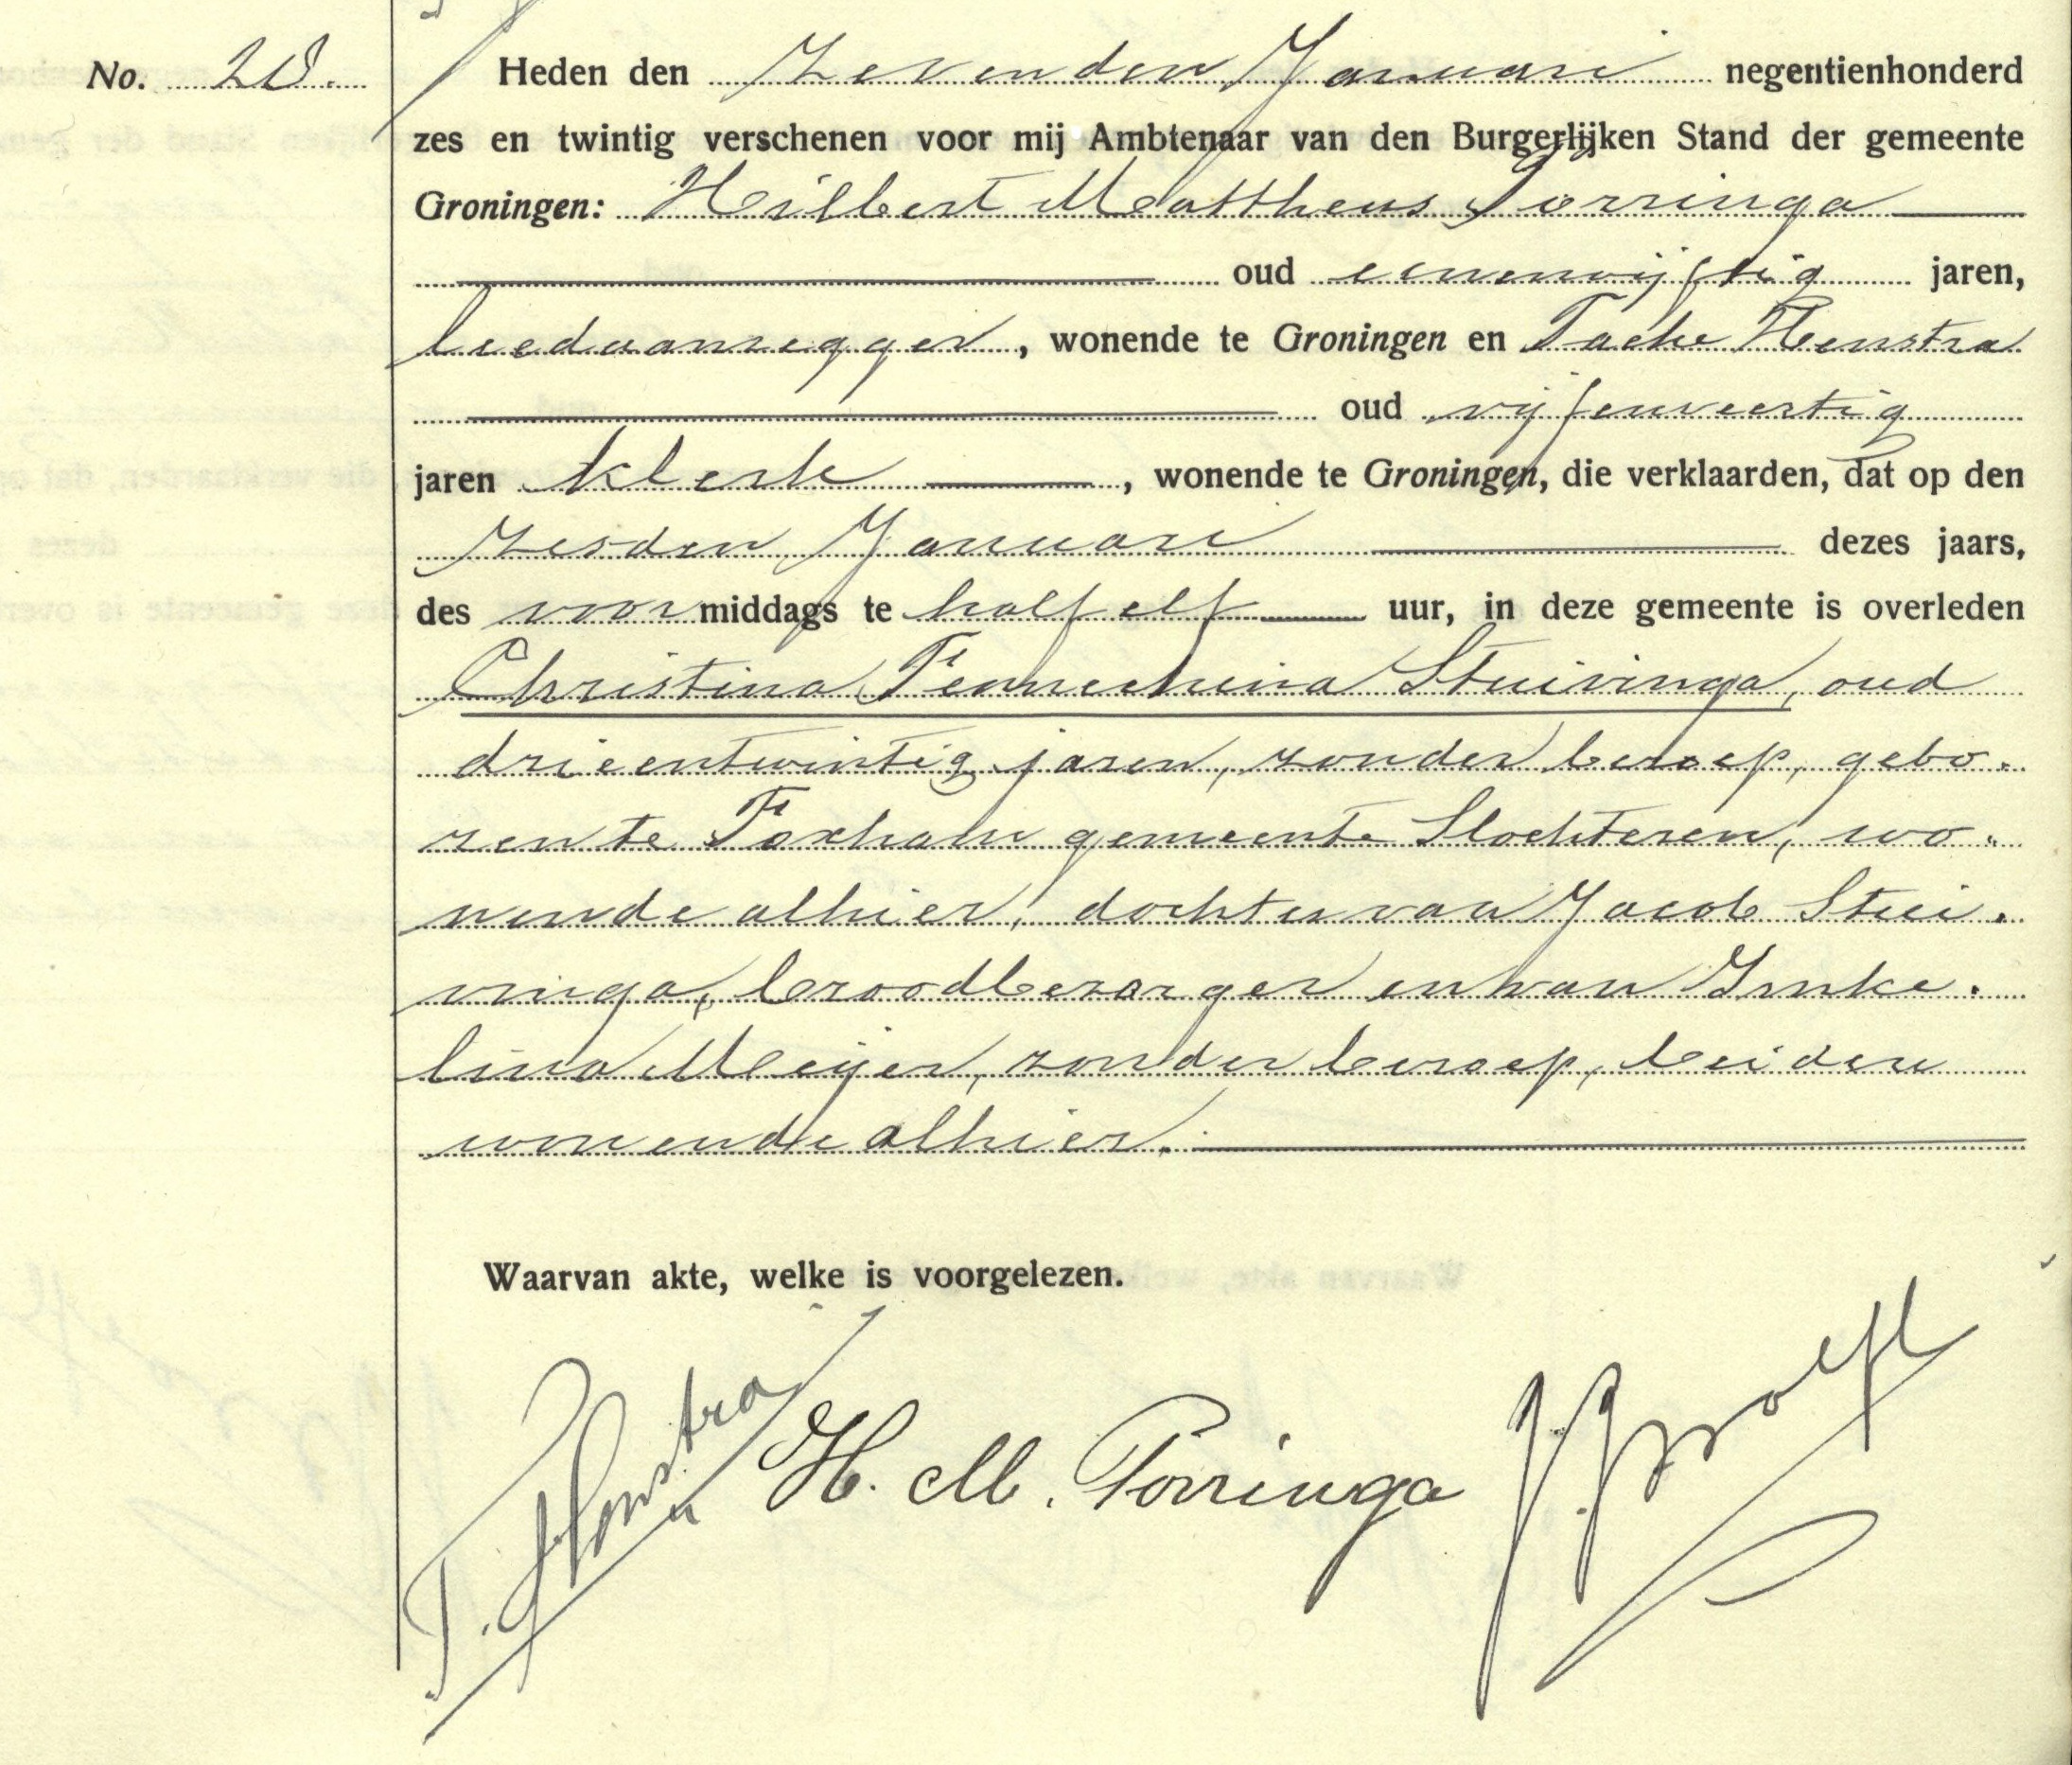 No. 20.
Heden den Zevenden Januari negentienhonderd
zes en twintig verschenen voor mij Ambtenaar van den Burgerlijken Stand der gemeente
Groningen: Hilbert Mattheus Porringa
oud eenenvijftig jaren,
leedaanzegger, wonende te Groningen en Taeke Henstra
oud vijfenveertig
jaren klerk, wonende te Groningen, die verklaarden, dat op den
zesden Januari dezes jaars,
des voormiddags te half elf uur, in deze gemeente is overleden
Christina Fennechina Stuivinga, oud
drieentwintig jaren, zonder beroep, gebo-
ren te Foxham gemeente Slochteren, wo-
nende alhier, dochter van Jacob Stui-
vinga, broodbezorger en van Imke-
lina Meijer, zonder beroep, beiden
wonende alhier.
Waarvan akte, welke is voorgelezen.
T. Henstra H. M. Porringa